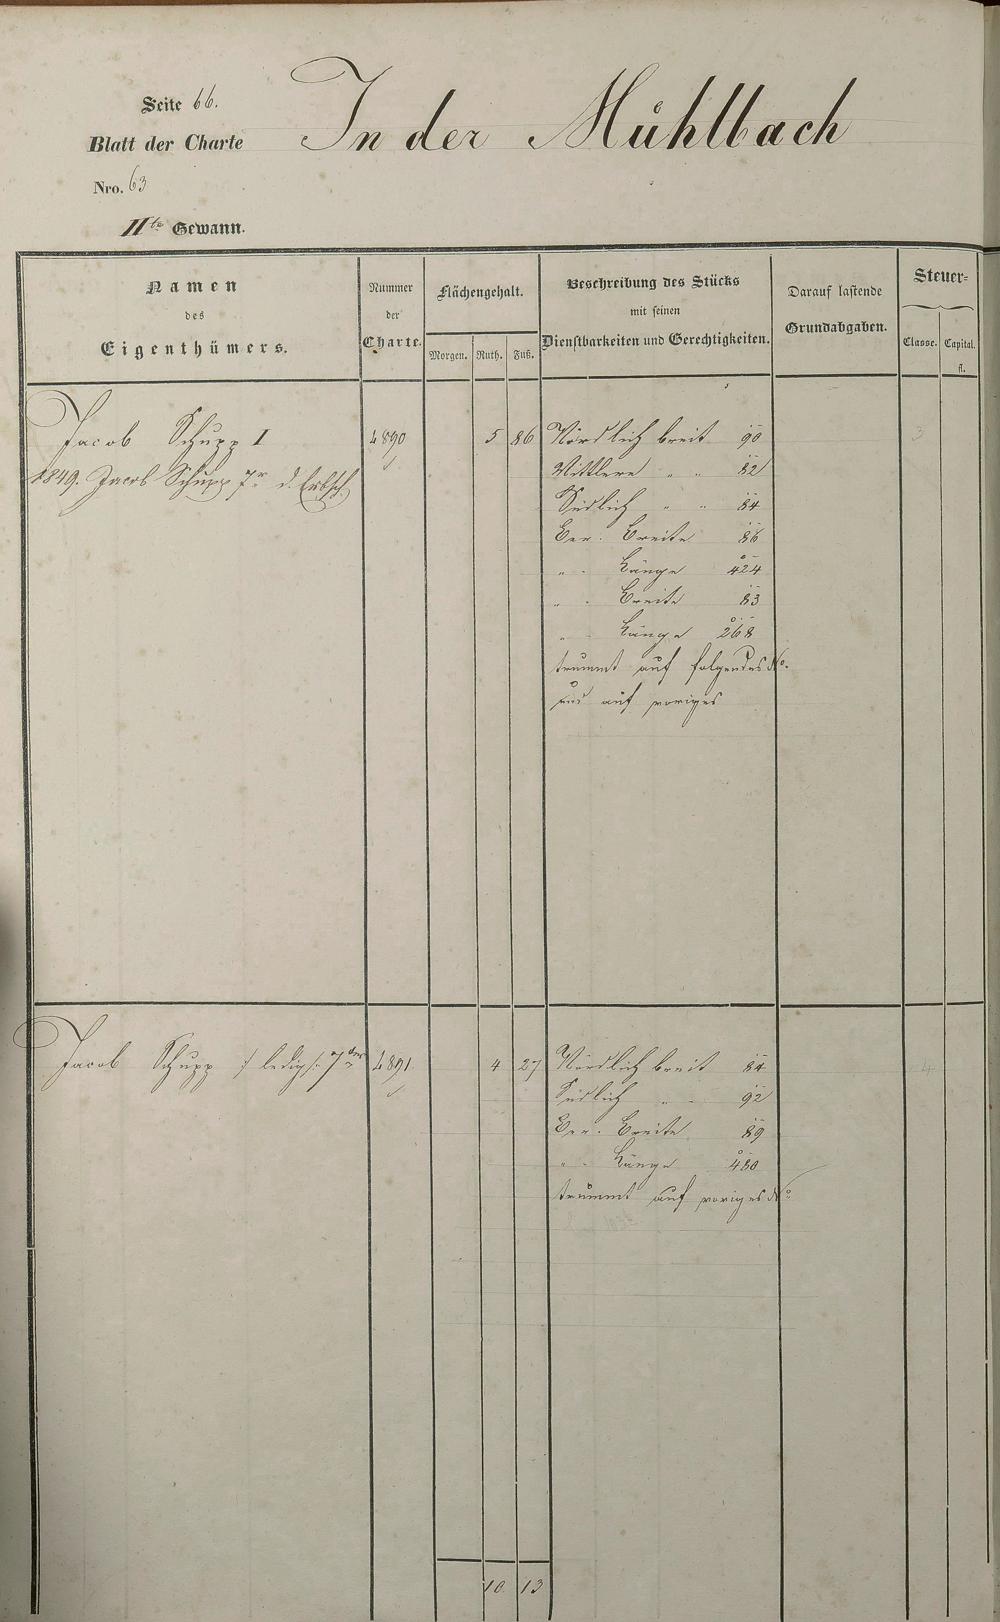 Seite 66.
In der Mühlbach
Blatt der Charte
Nro. 63
IIte Gewann.
Namen
des
Eigenthümers.
Nummer
der
Charte.
Flächengehalt.
Morgen. Ruth. Fuß.
Beschreibung des Stücks
mit seinen
Dienstbarkeiten und Gerechtigkeiten.
Darauf lastende
Grundabgaben.
Steuer-
Classe. Capital.
fl.
Jacob Schupp I 4890 5 86 Nördlich breit 90 3
1849. Jacob Schupp 7r d. Erbsch.
Mittlere " " 82
Südlich " " 84
Ber. Breite 86
" - Länge 424
" - Breite 83
" - Länge 268
trummt auf folgendes No.
und auf voriges
Jacob Schupp ledig 7ter 4891 4 27 Nördlich breit 84 4
Südlich " - 92
Ber. Breite 89
" - Länge 480
trummt auf voriges No
10 13